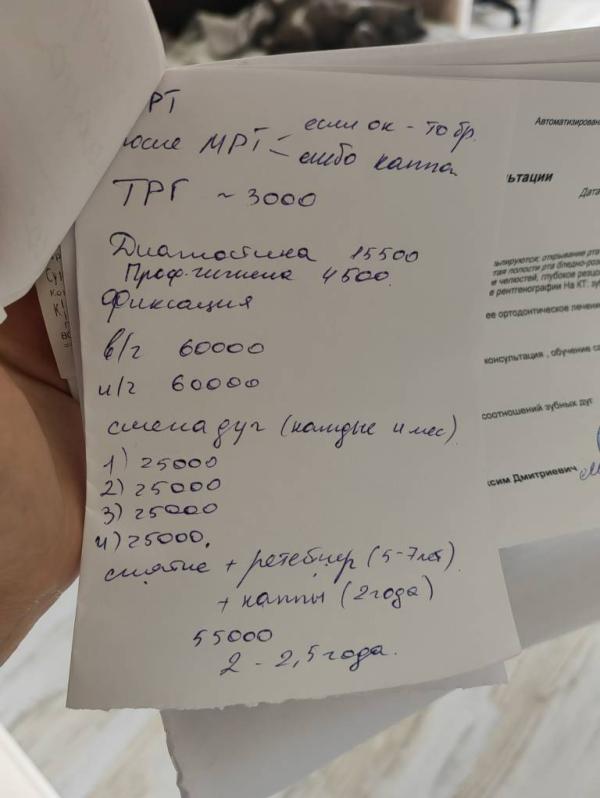 РТ
после МРТ - если ок - то бр.
- либо каппа
ТРГ ~ 3000
Диагностика 15500
Проф. гигиена 4500.
Фиксация
в/г 60000
н/г 60000
смена дуг (каждые 4 мес)
1) 25000
2) 25000
3) 25000
4) 25000.
снятие + ретейнер (5-7 лет)
+ каппы (2 года)
55000
2 - 2,5 года.
Автоматизирован
ьтации
Дата
ьпируются; открывание рта
тая полости рта бледно-роз
е челюстей, глубокое резцо
е рентгенографии На КТ: зу
ее ортодонтическое лечени
консультация , обучение са
соотношений зубных дуг
ксим Дмитриевич